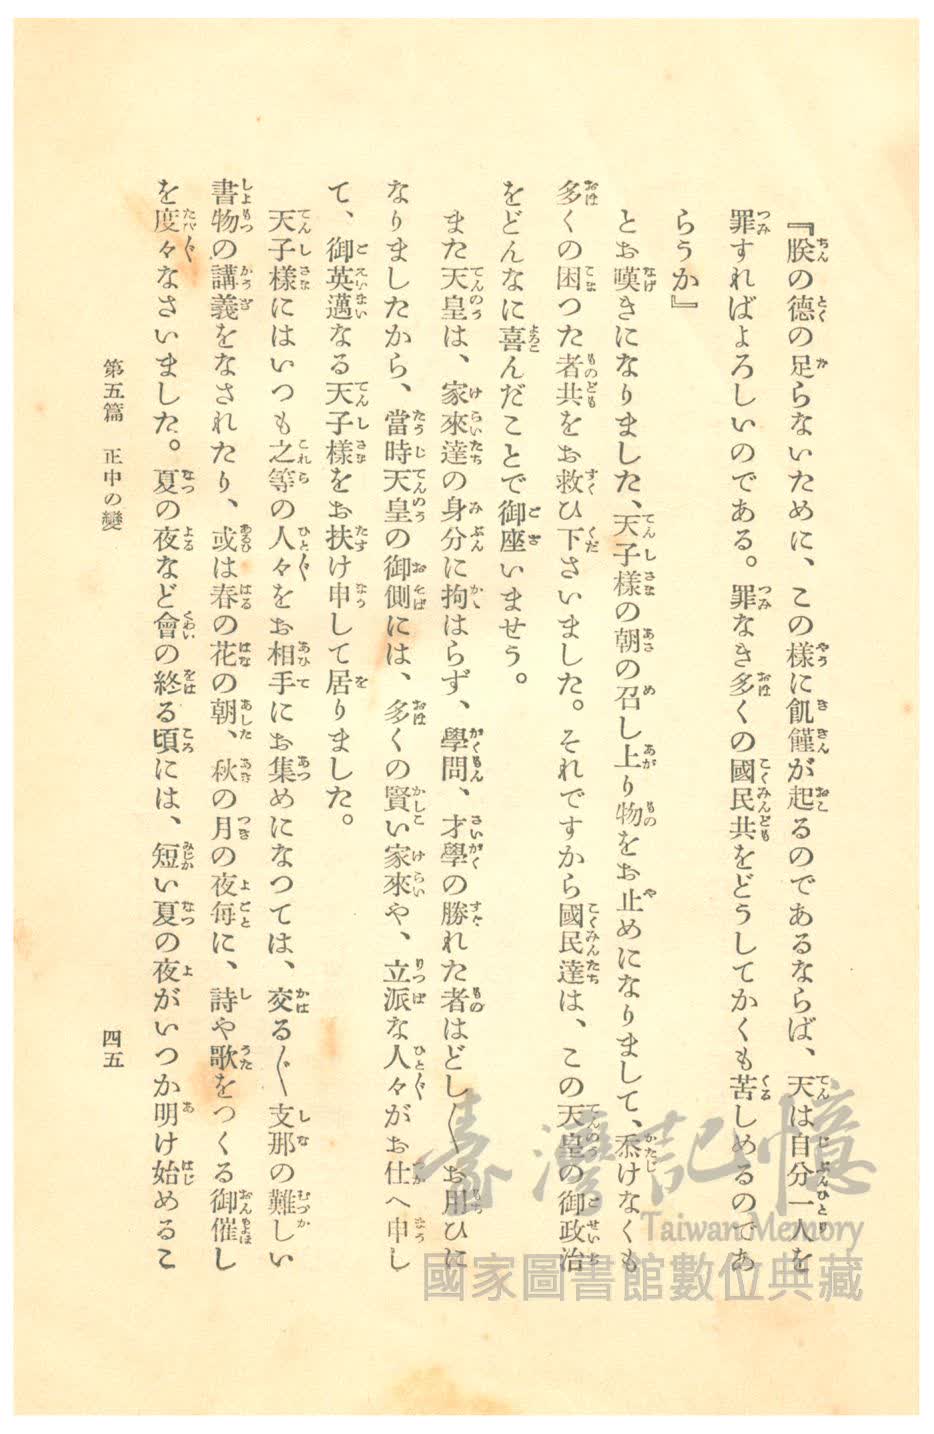 『朕の德の足らないために、この樣に飢饉が起るのであるならば、天は自分一人を
罪すればよろしいのである。罪なき多くの國民共をどうしてかくも苦しめるのであ
らうか』
とお嘆きになりました、天子樣の朝の召し上り物をお止めになりまして、忝けなくも
多くの困つた者共をお救ひ下さいました。それですから國民達は、この天皇の御政治
をどんなに喜んだことで御座いませう。
また天皇は、家來達の身分に拘はらず、學問、才學の勝れた者はどし〱お用ひに
なりましたから、當時天皇の御側には、多くの賢い家來や、立派な人々がお仕へ申し
て、御英邁なる天子樣をお扶け申して居りました。
天子樣にはいつも之等の人々をお相手にお集めになつては、交る〲支那の難しい
書物の講義をなされたり、或は春の花の朝、秋の月の夜每に、詩や歌をつくる御催し
を度々なさいました。夏の夜など會の終る頃には、短い夏の夜がいつか明け始めるこ
第五篇 正中の變
四五
臺灣記憶
Taiwan Memory
國家圖書館數位典藏